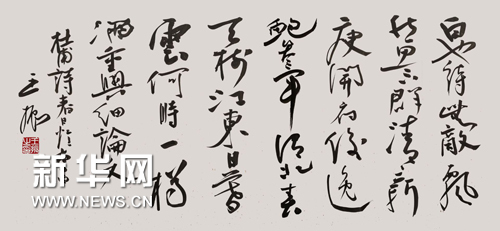 白也詩無敵飄
然思不群清新
庾開府俊逸
鮑參軍渭北春
天樹江東日暮
雲何時一樽
酒重與細論文
杜甫詩春日憶
王
新华网
WWW.NEWS.CN